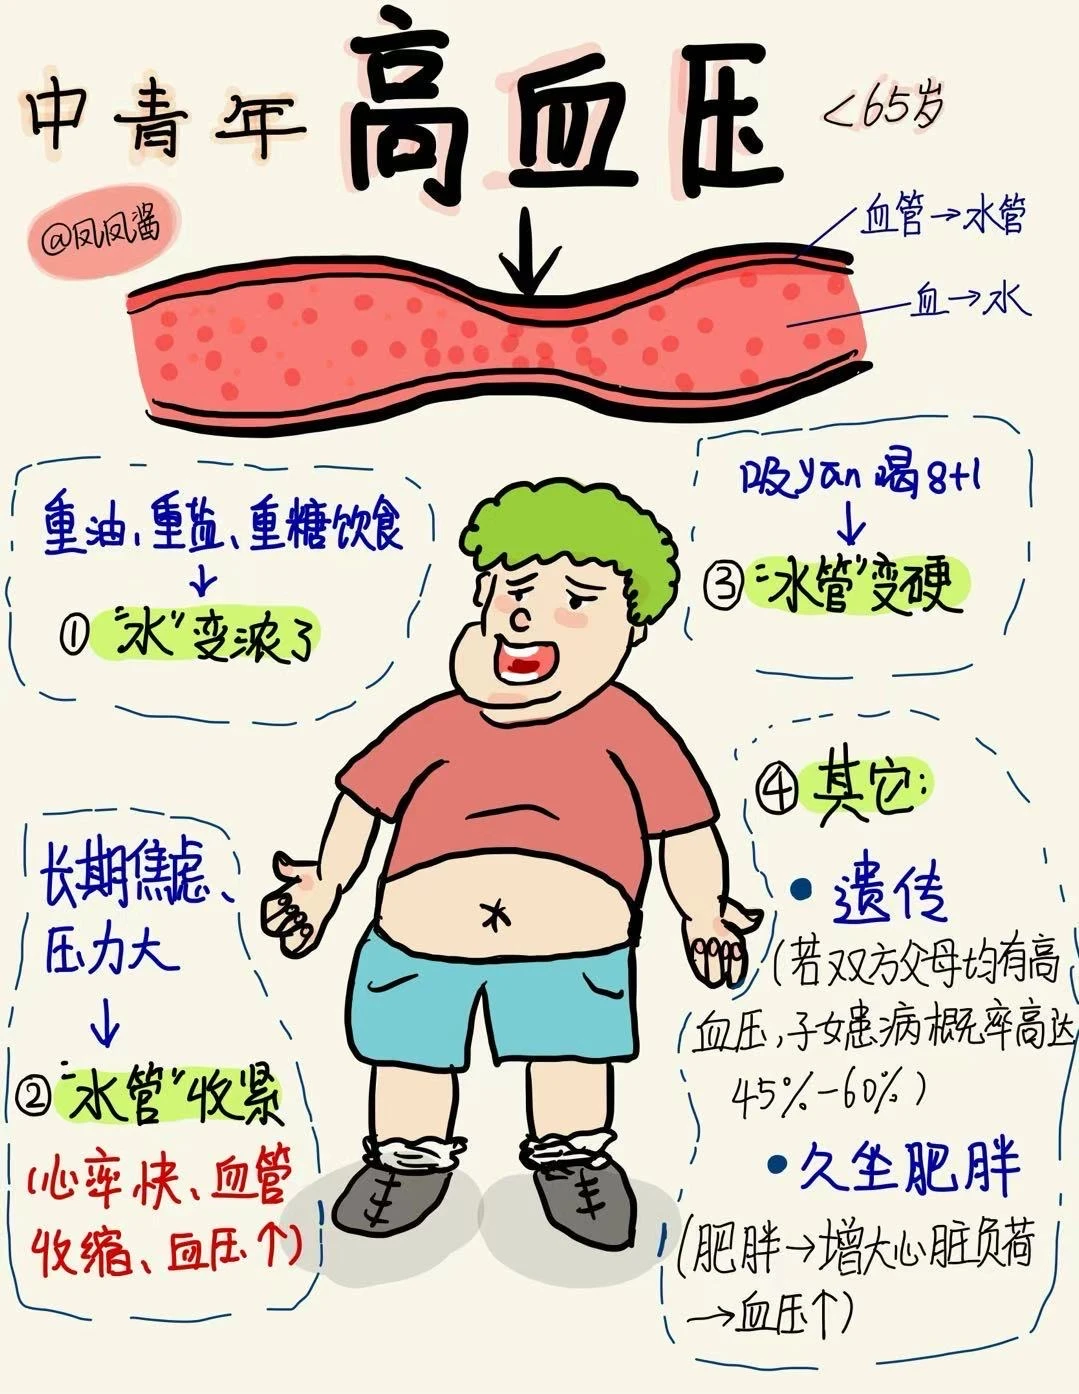 中青年 高血压 <65岁
@凤凤酱
血管→水管
血→水
重油、重盐、重糖饮食
↓
① "水"变浓了
吸yan喝8+1
↓
③ "水管"变硬
长期焦虑、
压力大
↓
② "水管"收紧
(心率快、血管
收缩、血压↑)
④ 其它:
• 遗传
(若双方父母均有高
血压,子女患病概率高达
45%-60%)
• 久坐肥胖
(肥胖→增大心脏负荷
→血压↑)